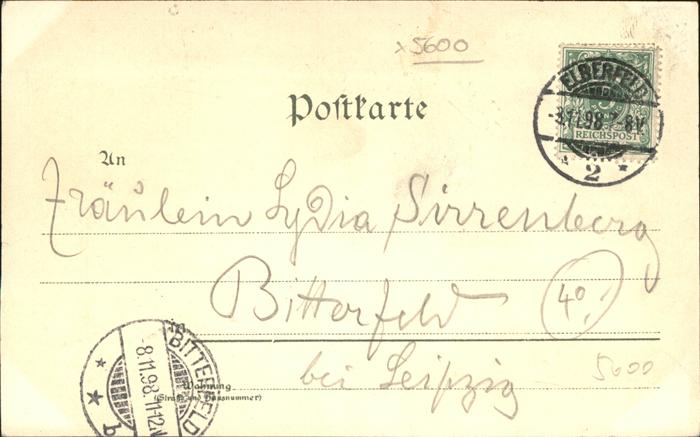 x 5600
Postkarte
ELBERFELD
-3.11.98.7-8V.
REICHSPOST
2
An
Fräulein Lydia Sirrenberg
Bitterfeld 40.
bei Leipzig
5600
Wohnung
(Straße und Hausnummer)
BITTERFELD
8.11.98.11-12N
b